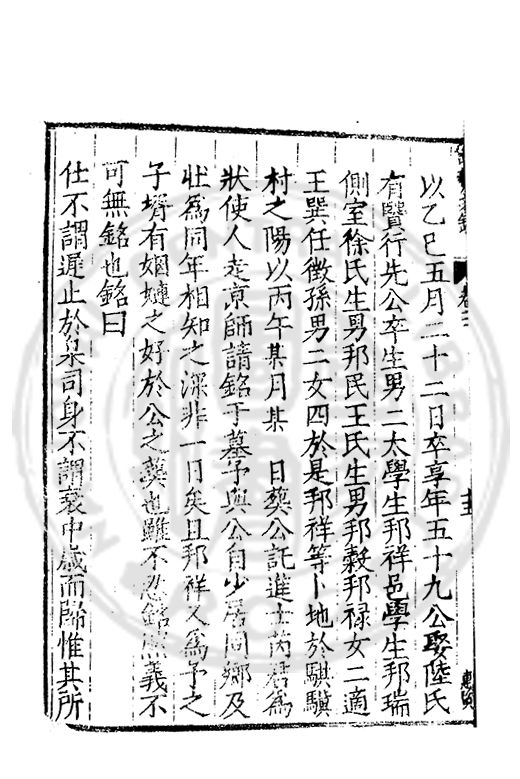 以乙巳五月二十二日卒享年五十九公娶陸氏
有賢行先公卒生男二太學生邦祥邑學生邦瑞
側室徐氏生男邦民王氏生男邦穀邦禄女二適
王巽任徵孫男二女四於是邦祥等卜地於騏驥
村之陽以丙午某月某 日葬公託進士芮君為
狀使人走京師請銘于墓予與公自少居同鄉及
壯為同年相知之深非一日矣且邦祥又為予之
子壻有姻嫌之好於公之葬也雖不忍銘然義不
可無銘也銘曰
仕不謂遲止於臬司身不謂衰中歲而歸惟其所
卷二
十五